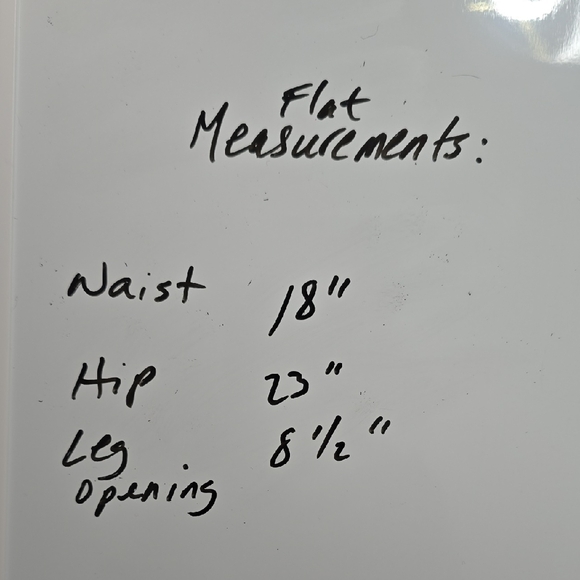 Flat
Measurements:
Waist 18"
Hip 23"
Leg 8 1/2"
opening